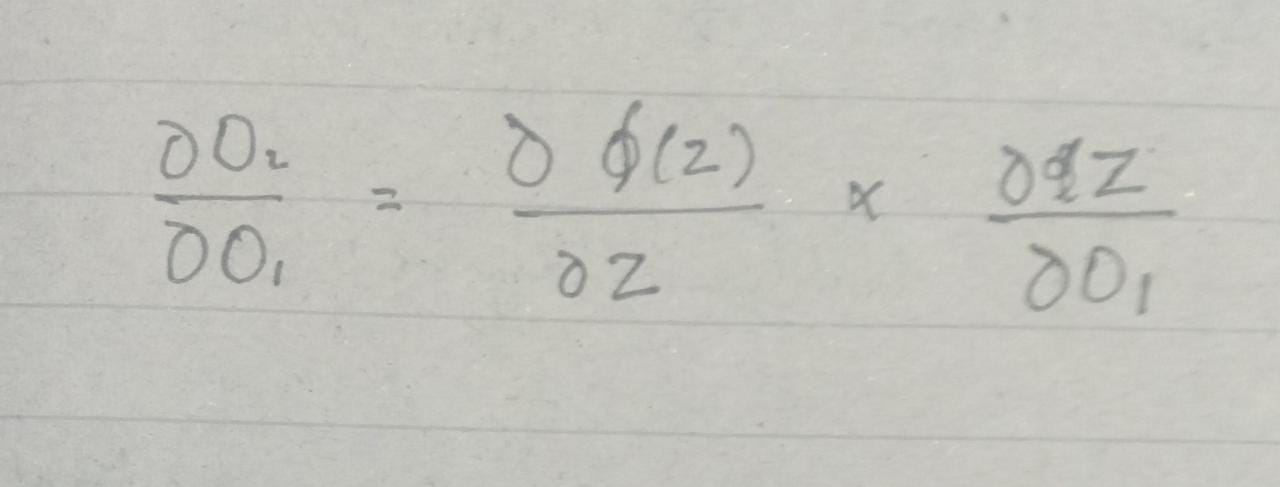 ∂O₂/∂O₁ = ∂ϕ(z)/∂z × ∂z/∂O₁